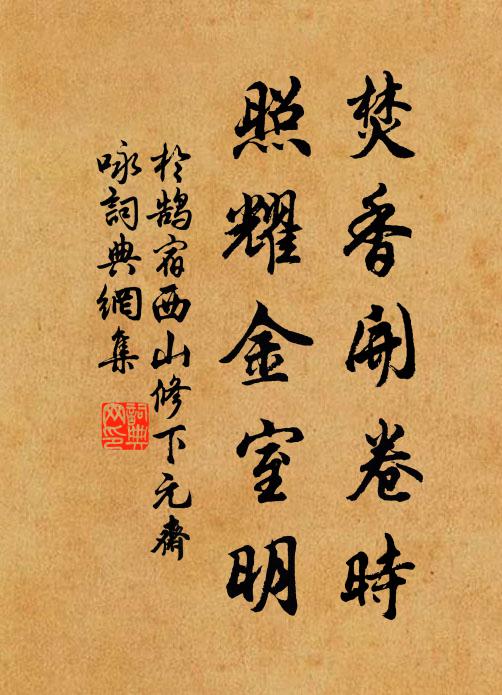 焚香開卷時
照耀金室明
於鵠宿西山修下元齋
咏詞典網集
詞典網印